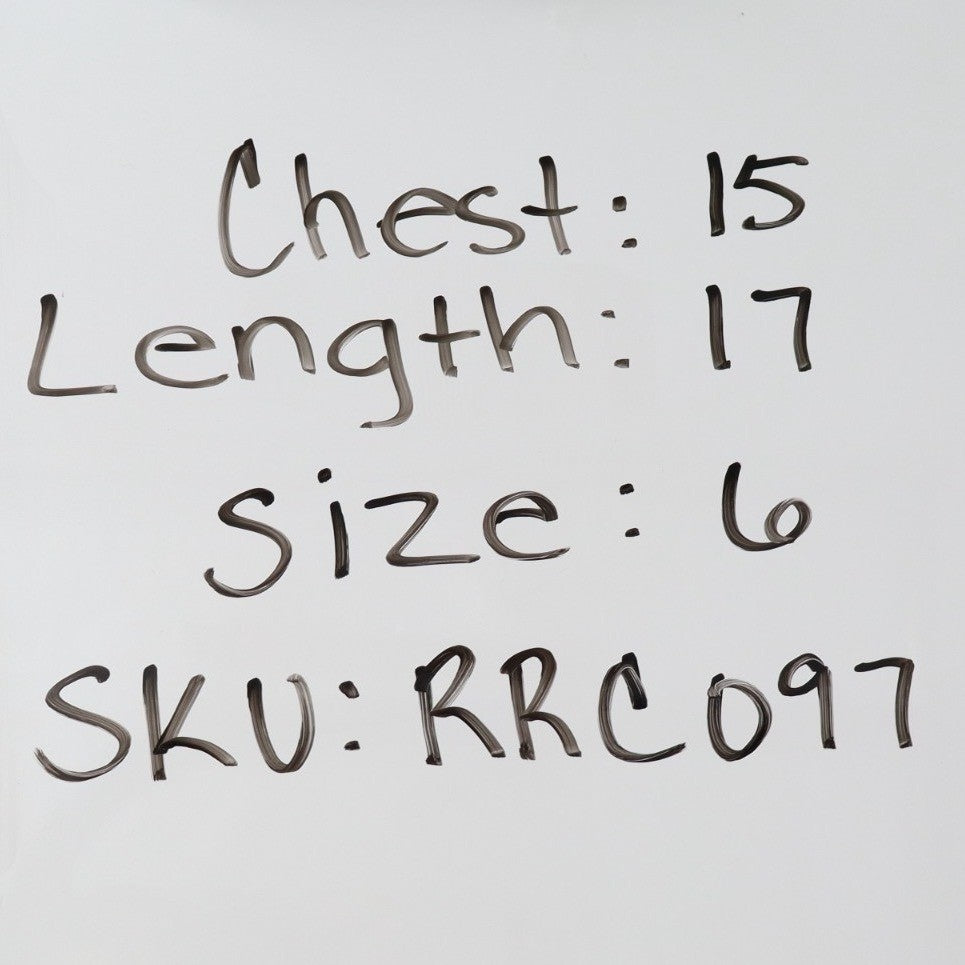 Chest: 15
Length: 17
Size: 6
SKU: RRC097